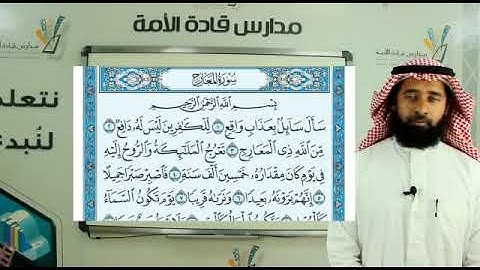 مدارس قادة الأمة
مدارس قادة الأمة
نتعلم
لنُبد
سُورَةُ المَعَارِجِ
بِسْمِ اللَّهِ الرَّحْمَٰنِ الرَّحِيمِ
سَأَلَ سَآئِلٌۢ بِعَذَابٍ وَاقِعٍ ١ لِّلْكَٰفِرِينَ لَيْسَ لَهُۥ دَافِعٌ ٢
مِّنَ ٱللَّهِ ذِى ٱلْمَعَارِجِ ٣ تَعْرُجُ ٱلْمَلَٰٓئِكَةُ وَٱلرُّوحُ إِلَيْهِ
فِى يَوْمٍ كَانَ مِقْدَارُهُۥ خَمْسِينَ أَلْفَ سَنَةٍ ٤ فَٱصْبِرْ صَبْرًا جَمِيلًا
٥ إِنَّهُمْ يَرَوْنَهُۥ بَعِيدًا ٦ وَنَرَىٰهُ قَرِيبًا ٧ يَوْمَ تَكُونُ ٱلسَّمَآءُ